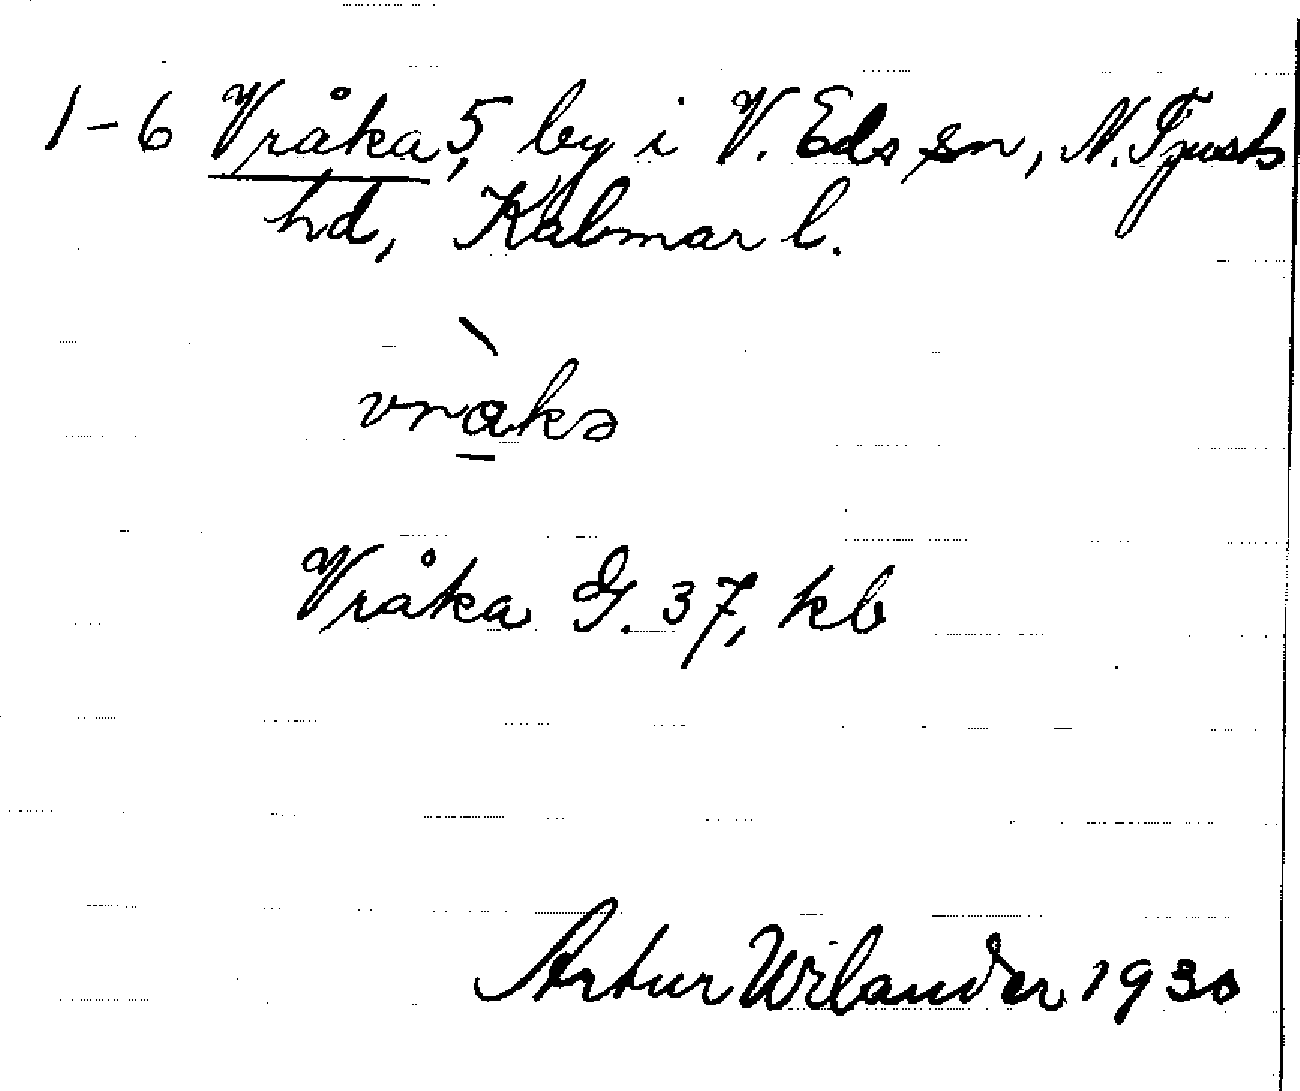 1-6 Vråka 5, by i V. Eds sn, N. Tjusts
hd, Kalmar l.
vràkə
Vråka G. 37, kb
Artur Wilander 1930